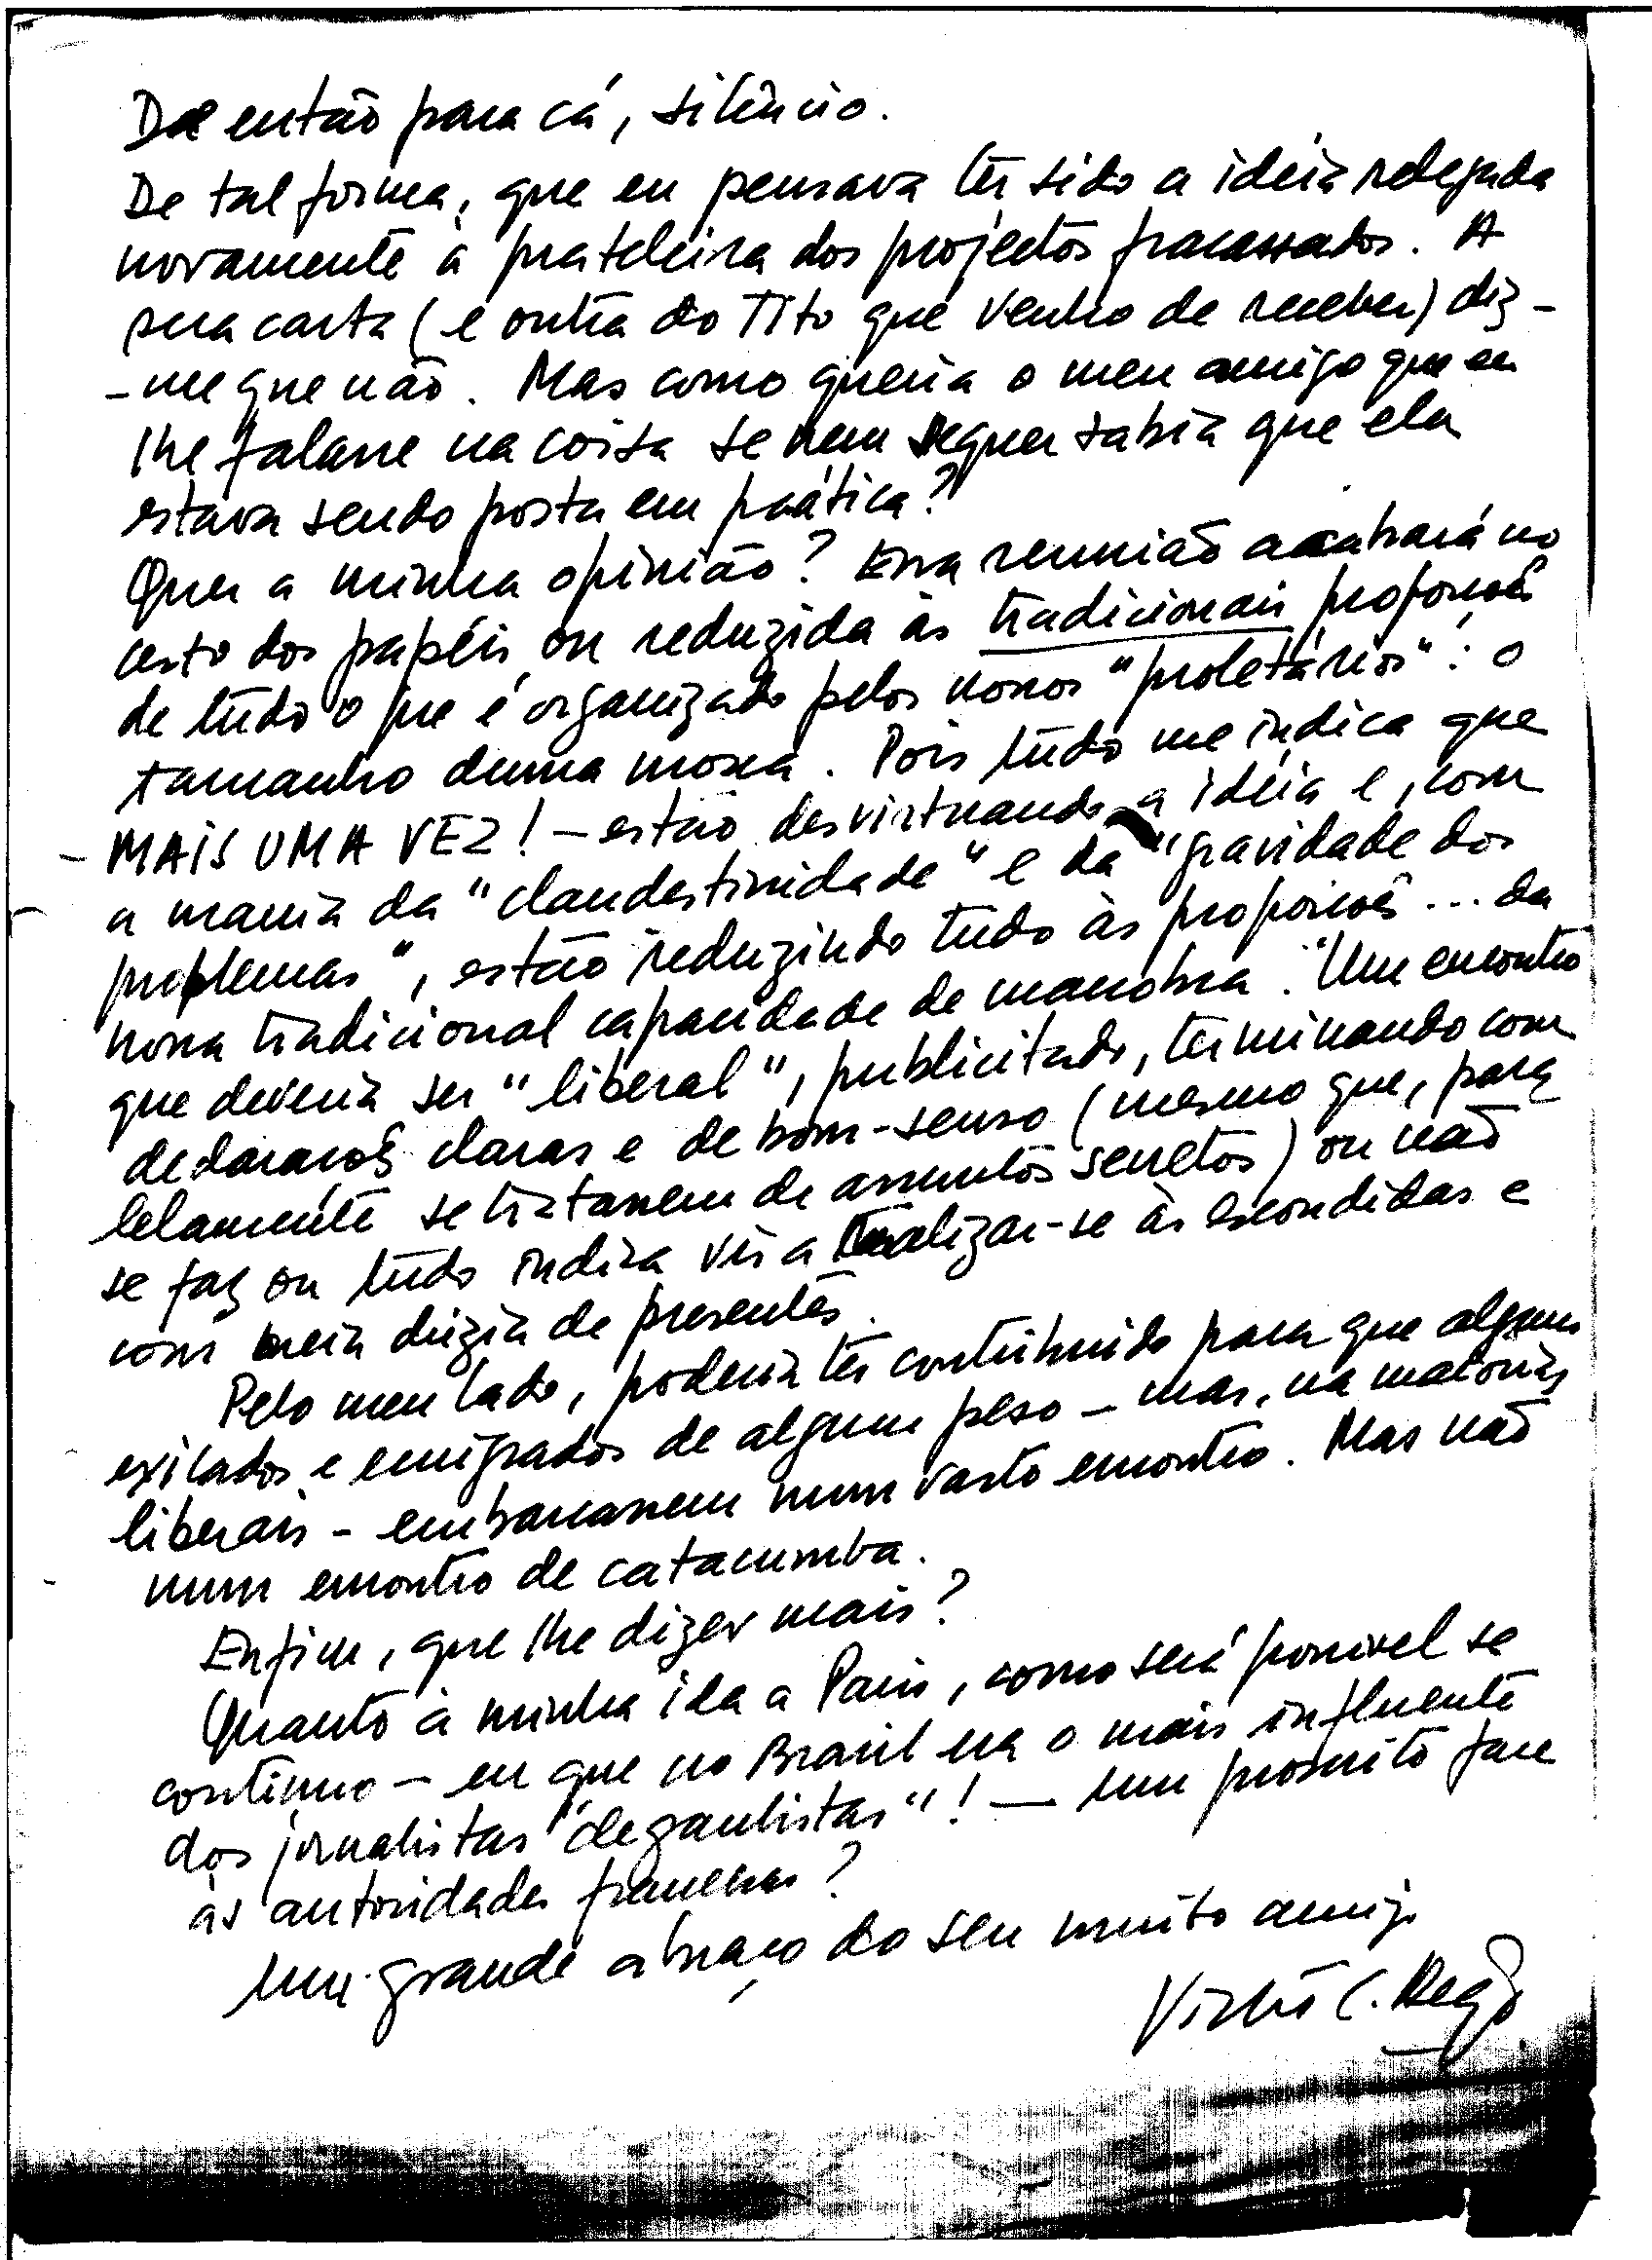 De então para cá, silêncio.
De tal forma, que eu pensava ter sido a idéia relegada
novamente à prateleira dos projectos fracassados. A
sua carta (e outra do Tito que venho de receber) diz-
-me que não. Mas como queria o meu amigo que eu
lhe falasse na coisa se nem sequer sabia que ela
estava sendo posta em prática?
Quer a minha opinião? Essa reunião acabará no
cesto dos papéis ou reduzida às tradicionais proporções
de tudo o que é organizado pelos nossos "proletários": o
tamanho duma mosca. Pois tudo me indica que
- MAIS UMA VEZ! - estão desvirtuando a idéia e, com
a mania da "clandestinidade" e da "gravidade dos
problemas", estão reduzindo tudo às proporções... da
nossa tradicional capacidade de manobra. Um encontro
que deveria ser "liberal", publicitado, terminando com
declarações claras e de bom-senso (mesmo que, para
lelamente se tratassem de assuntos secretos) ou não
se faz ou tudo indica vir a realizar-se às escondidas e
com meia dúzia de presentes.
Pelo meu lado, poderia ter contribuido para que alguns
exilados e emigrados de algum peso - mas, na maioria,
liberais - embarcassem num vasto encontro. Mas não
num encontro de catacumba.
Enfim, que lhe dizer mais?
Quanto à minha ida a Paris, como será possivel se
continuo - eu que no Brasil era o mais influente
dos jornalistas "degaulistas"! - um proscrito face
às autoridades francesas?
Um grande abraço do seu muito amigo
Victor C. Rego